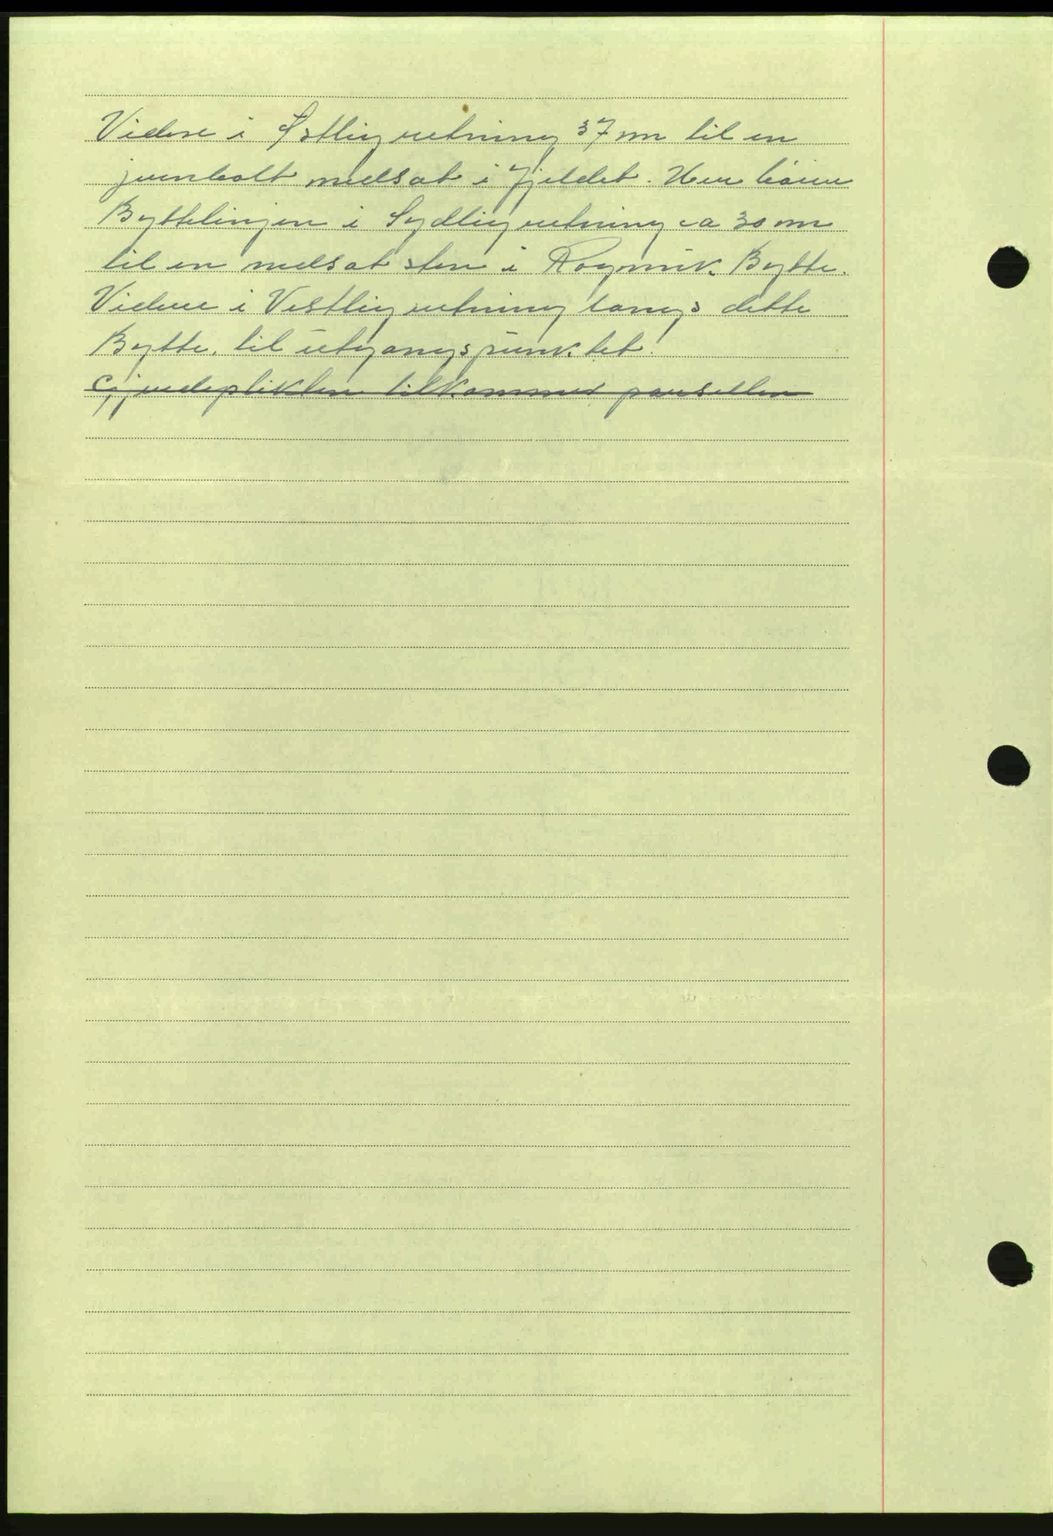 Videre i Østlig retning 37 m til en
jernbolt nedsat i fjeldet. Her bøier
Byttelinjen i Sydlig retning ca 30 m
til en nedsat sten i Rognvik. Bytte.
Videre i Vestlig retning langs dette
Bytte, til utgangspunktet.
Gjerdeplikten tilkommer parsellen